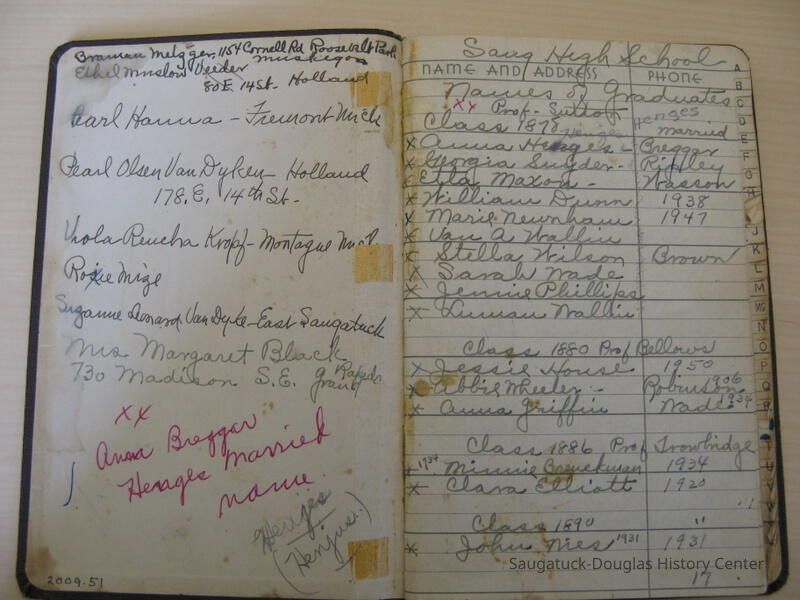 Braman Metzger, 1154 Cornell Rd Roosevelt Park
Muskegon
Ethel Winslow Veeder
80 E. 14 St. Holland
Pearl Hanna - Fremont Mich
Pearl Olsen Van Dyken - Holland
178. E. 14th St.
Viola Reucha Kropf - Montague Mich
Roxie Mize
Suzanne Leonard Van Dyke - East Saugatuck
Mrs Margaret Black
730 Madison S.E. Grand Rapids
xx
Anna Breggar
Henges Married
name.
Henjes
(Henjus.)
2009.51
Saug High School
NAME AND ADDRESS PHONE
Names of Graduates
xx Prof - Sutton
Class 1878 Henges Henges married
x Anna Henges - Breggar
x Georgia Snyder - Ripley
x Etta Maxon - Wasson
x William Dunn 1938
x Marie Newnham 1947
x Van A Wallin
x Stella Wilson Brown
x Sarah Wade
x Jennie Phillips
x Luman Wallin
Class 1880 Prof Bellows
x Jessie House 1950
x Abbie Wheeler - Robinson 1906
x Anna Griffin Wade 1934
Class 1886 Prof Trowbridge
x 1934 Minnie 1934
x Clara Elliott 1920
Class 1890 "
x John Nies 1931 1931
17
A
B
C
D
E
F
G
H
J
K
L
M
MC
N
O
P
Q
R
Saugatuck-Douglas History Center